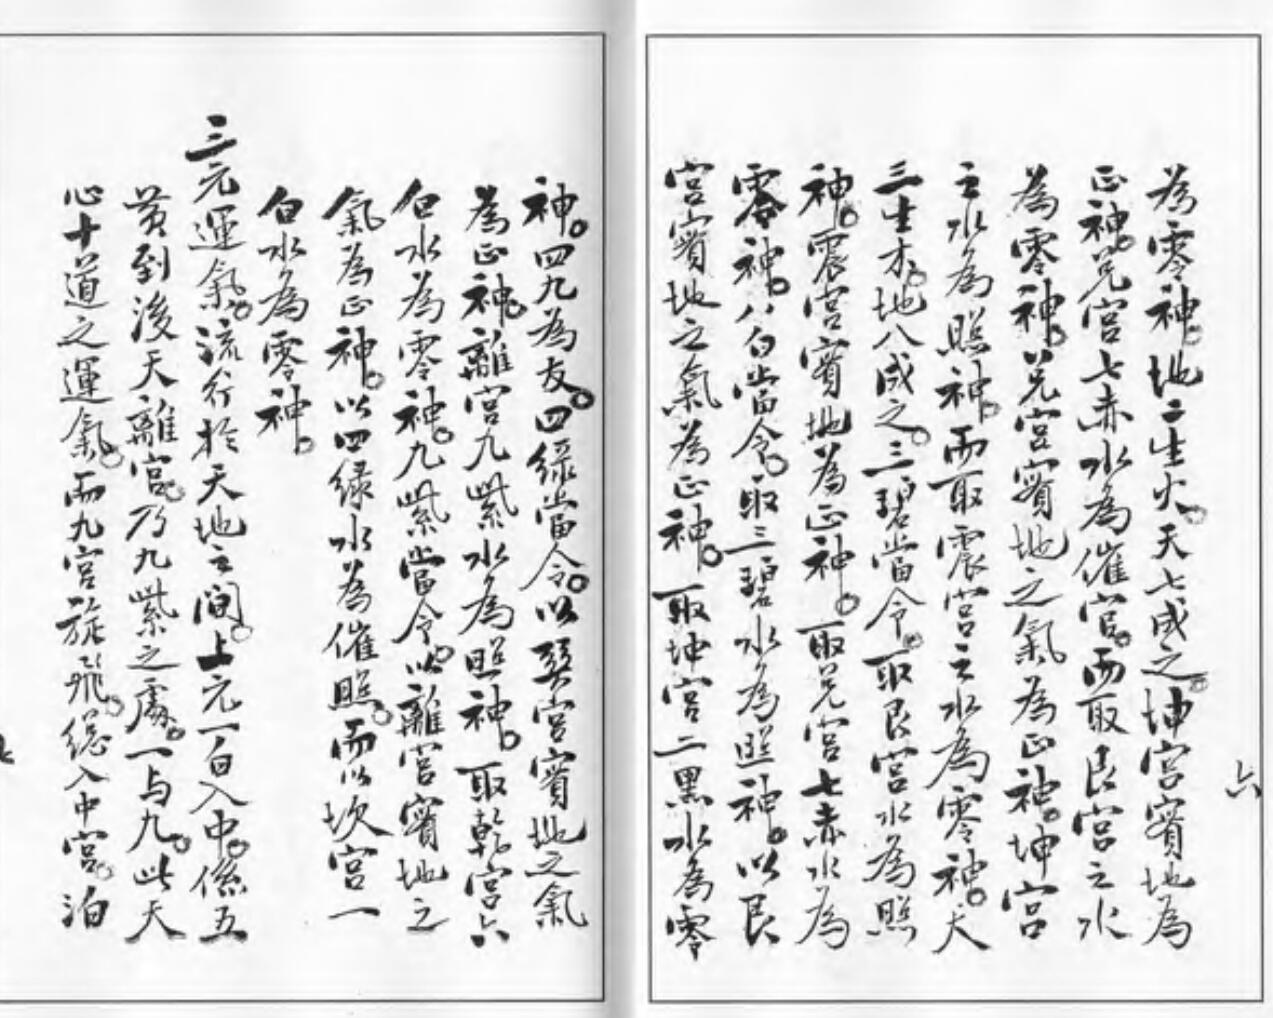 六
為零神。地二生火。天七成之。坤宮實地為
正神。兌宮七赤水為催官。而取艮宮之水
為零神。兌宮實地之氣。為正神。坤宮
之水為照神。而取震宮之水為零神。天
三生木。地八成之。三碧當令。取艮宮水為照
神。震宮實地為正神。取兌宮七赤水為
零神。八白當令。取三碧水為照神。以艮
宮實地之氣為正神。取坤宮二黑水為零
神。四九為友。四綠當令。以巽宮實地之氣
為正神。離宮九紫水為照神。取乾宮六
白水為零神。九紫當令。以離宮實地之
氣為正神。以四綠水為催照。而以坎宮一
白水為零神。
三元運氣。流行於天地之間。上元一白入中。係五
黃到後天離宮。乃九紫之處。一与九。此天
心十道之運氣。而九宮旅飛。總入中宮。泊
七